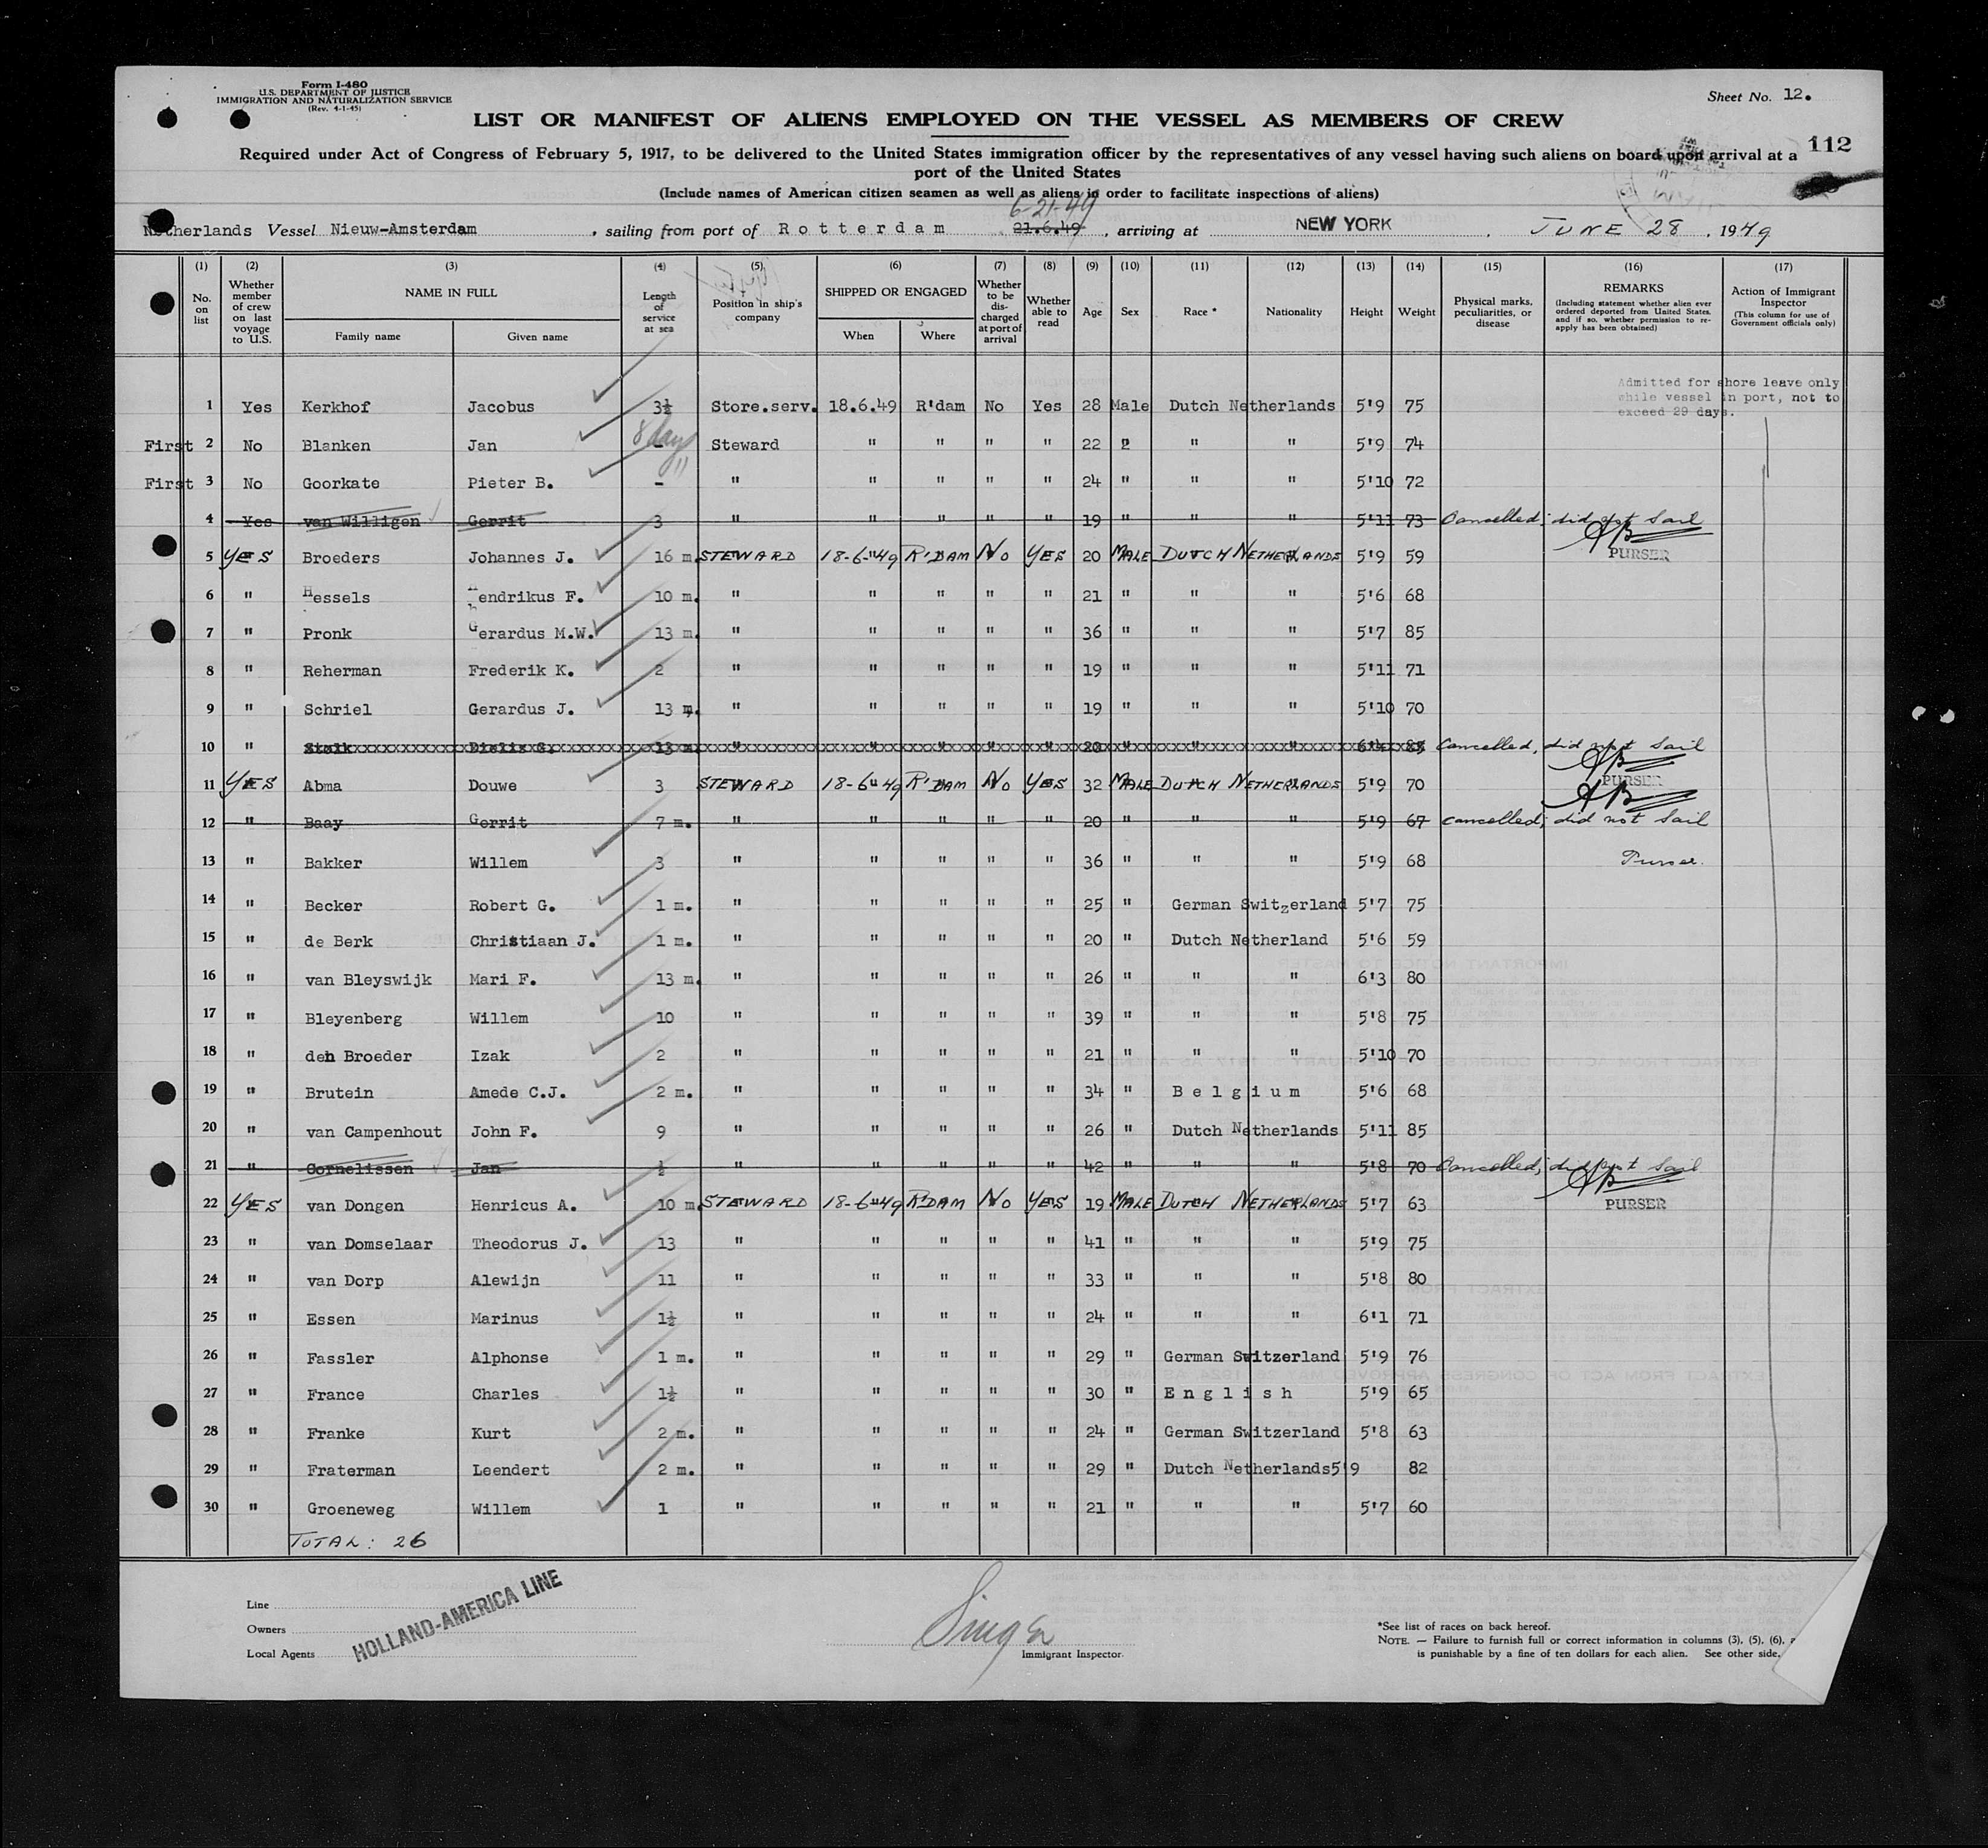 Form I-480
U.S. DEPARTMENT OF JUSTICE
IMMIGRATION AND NATURALIZATION SERVICE
(Rev. 4-1-45)
Sheet No. 12.
LIST OR MANIFEST OF ALIENS EMPLOYED ON THE VESSEL AS MEMBERS OF CREW
112
Required under Act of Congress of February 5, 1917, to be delivered to the United States immigration officer by the representatives of any vessel having such aliens on board upon arrival at a
port of the United States
(Include names of American citizen seamen as well as aliens in order to facilitate inspections of aliens)
6-21-49
Netherlands Vessel Nieuw-Amsterdam, sailing from port of Rotterdam 21.6.49, arriving at NEW YORK, JUNE 28, 1949
(1) (2) (3) (4) (5) (6) (7) (8) (9) (10) (11) (12) (13) (14) (15) (16) (17)
No. on list
Whether member of crew on last voyage to U.S.
NAME IN FULL
Family name Given name
Length of service at sea
Position in ship's company
SHIPPED OR ENGAGED
When Where
Whether to be discharged at port of arrival
Whether able to read
Age
Sex
Race *
Nationality
Height
Weight
Physical marks, peculiarities, or disease
REMARKS
(Including statement whether alien ever ordered deported from United States, and if so, whether permission to re-apply has been obtained)
Action of Immigrant Inspector
(This column for use of Government officials only)
Admitted for shore leave only
while vessel in port, not to
exceed 29 days.
1 Yes Kerkhof Jacobus 3½ Store.serv. 18.6.49 R'dam No Yes 28 Male Dutch Netherlands 5'9 75
First 2 No Blanken Jan - 8 days Steward " " " " 22 " " " 5'9 74
First 3 No Goorkate Pieter B. - " " " " " " 24 " " " 5'10 72
4 Yes van Willigen Gerrit 3 " " " " " 19 " " " 5'11 73 Cancelled; did not sail
5 YES Broeders Johannes J. 16 m. STEWARD 18-6-49 R'DAM NO YES 20 MALE DUTCH NETHERLANDS 5'9 59 PURSER
6 " Hessels Hendrikus F. 10 m. " " " " " 21 " " " 5'6 68
7 " Pronk Gerardus M.W. 13 m. " " " " " 36 " " " 5'7 85
8 " Reherman Frederik K. 2 " " " " " 19 " " " 5'11 71
9 " Schriel Gerardus J. 13 m. " " " " " 19 " " " 5'10 70
10 " Stolk Dielis G. 13 m. " " " " " 20 " " " 6'4 85 Cancelled, did not sail
11 YES Abma Douwe 3 STEWARD 18-6-49 R'DAM NO YES 32 MALE DUTCH NETHERLANDS 5'9 70 PURSER
12 " Baay Gerrit 7 m. " " " " " 20 " " " 5'9 67 cancelled; did not sail
13 " Bakker Willem 3 " " " " " 36 " " " 5'9 68 Purser.
14 " Becker Robert G. 1 m. " " " " " 25 " German Switzerland 5'7 75
15 " de Berk Christiaan J. 1 m. " " " " " 20 " Dutch Netherland 5'6 59
16 " van Bleyswijk Mari F. 13 m. " " " " " 26 " " " 6'3 80
17 " Bleyenberg Willem 10 " " " " " 39 " " " 5'8 75
18 " den Broeder Izak 2 " " " " " 21 " " " 5'10 70
19 " Brutein Amede C.J. 2 m. " " " " " 34 " Belgium 5'6 68
20 " van Campenhout John F. 9 " " " " " 26 " Dutch Netherlands 5'11 85
21 " Cornelissen Jan ½ " " " " " 42 " " " 5'8 70 Cancelled; did not sail
22 YES van Dongen Henricus A. 10 m. STEWARD 18-6-49 R'DAM NO YES 19 MALE DUTCH NETHERLANDS 5'7 63 PURSER
23 " van Domselaar Theodorus J. 13 " " " " " 41 " " " 5'9 75
24 " van Dorp Alewijn 11 " " " " " 33 " " " 5'8 80
25 " Essen Marinus 1½ " " " " " 24 " " " 6'1 71
26 " Fassler Alphonse 1 m. " " " " " 29 " German Switzerland 5'9 76
27 " France Charles 1½ " " " " " 30 " English 5'9 65
28 " Franke Kurt 2 m. " " " " " 24 " German Switzerland 5'8 63
29 " Fraterman Leendert 2 m. " " " " " 29 " Dutch Netherlands 5'9 82
30 " Groeneweg Willem 1 " " " " " 21 " " " 5'7 60
TOTAL: 26
Line
Owners
Local Agents
HOLLAND-AMERICA LINE
Singer
Immigrant Inspector
*See list of races on back hereof.
NOTE. — Failure to furnish full or correct information in columns (3), (5), (6),
is punishable by a fine of ten dollars for each alien. See other side.